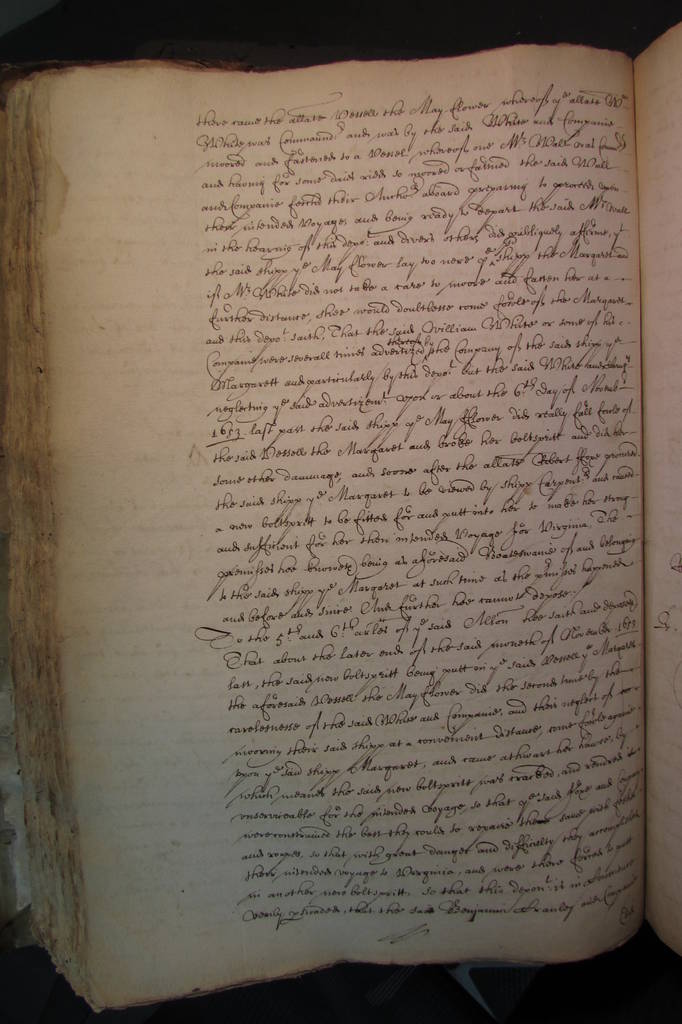 there came the allate Vessell the May-flower whereof ye allate Wm
White was Commaundr and was by the said White and Companie
moored and fastened to a Vessel whereof one Mr Wall was Commdr
and having for some daies ridd so moored or fastned the said Wall
and Companie fetcht their Anchor aboard preparing to proceed upon
their intended Voyage, and being ready to depart the said Mr Wall
in the hearing of this depot and divers others did publiquely affirme, yt
the said shipp ye May flower lay too neere ye shipp the Margaret and
if Mr White did not take a care to moore and fasten her at a
further distance, shee would doubtlesse come fowle of the Margaret
and this depot saith, That the said William White or some of his
Companie were severall times advertized thereof by the Company of the said shipp ye
Margarett and particularly by this depot but the said White and Compa
neglecting ye said advertizemt upon or about the 6th day of Novembr
1653 last past the said shipp ye May fflower did really fall fowle of
the said Vessell the Margaret and broke her boltspritt and did her
some other dammage, and soone after the allate Robert ffoxe procured
the said shipp ye Margaret to be viewed by shipp Carpentrs and caused
a new boltspritt to be fitted for and putt into her to make her strong
and sufficient for her then intended Voyage for Virginia. The
premisses hee knoweth being as aforesaid Boateswaine of and belonging
to the said shipp ye Margaret at such time as the prmisses happened
and before and since And further hee cannot depose.
To the 5th and 6th arles of ye said Allon hee saith and deposeth
That about the later end of the said moneth of November 1653
last, the said new boltspritt being putt in ye said Vessell ye Margaret
the aforesaid Vessell the May flower did the second time by the
carelesnesse of the said White and Companie, and their neglect of
mooring their said shipp at a convenient distance, come fowle againe
upon ye said shipp Margaret, and came athwart her hawse, by
which meanes the said new boltspritt was cracked, and rendred
unserviceable for the intended voyage, so that ye said ffoxe and Company
were constrained the best they could to repaire the same with
and ropes, so that with great danger and difficulty they accomplished
their intended voyage to Virginia, and were there forced to putt
in another new boltspritt. so that this deponent is in
verily perswaded, that the said Benjamin Cranley and Companie